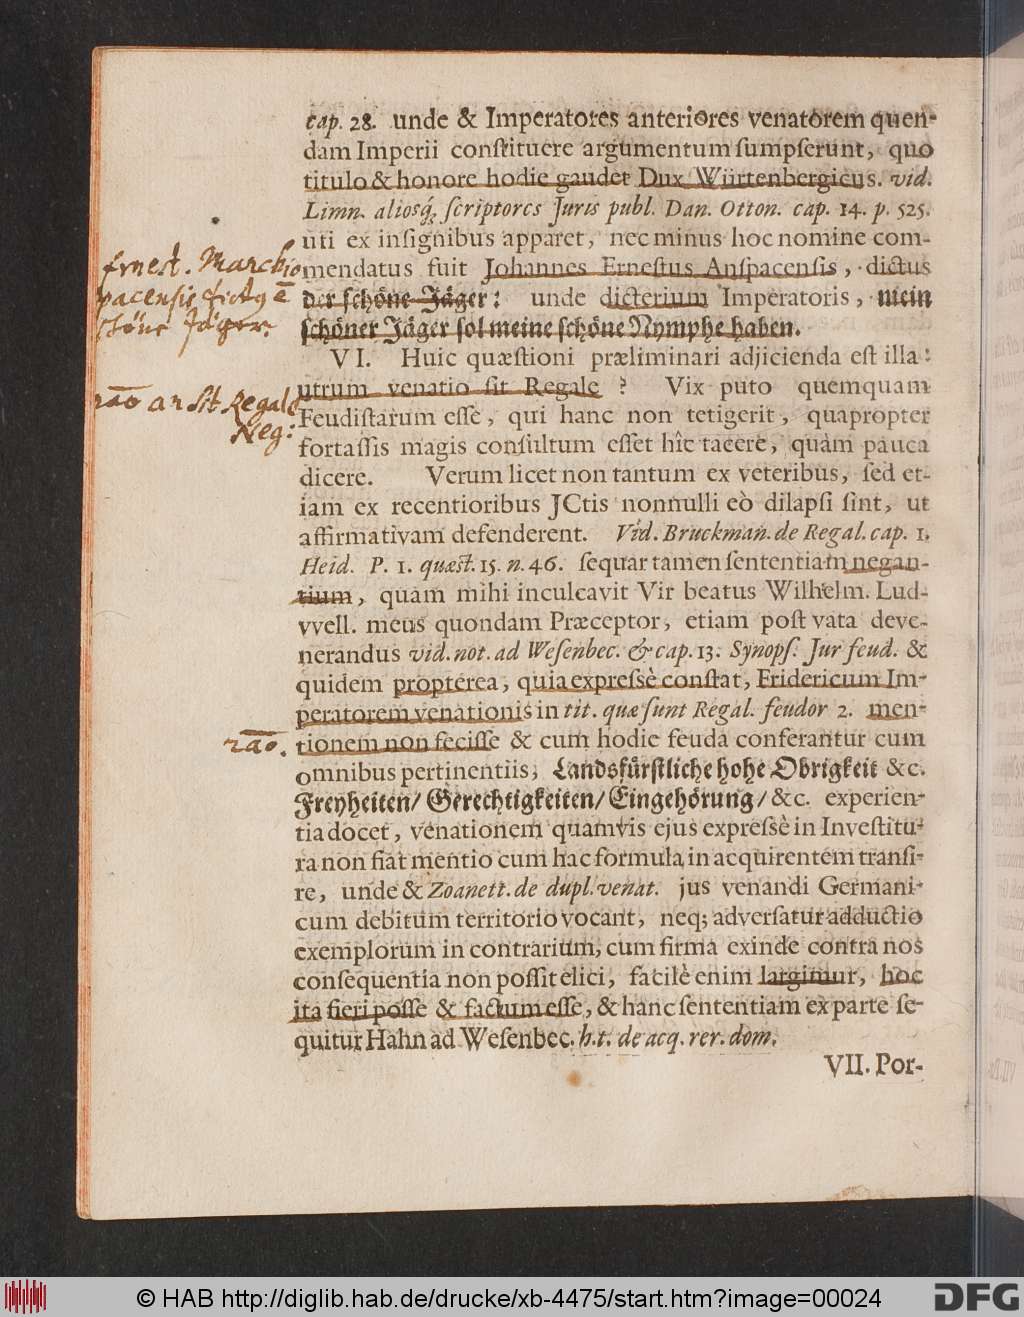 cap. 28. unde & Imperatores anteriores venatorem quen-
dam Imperii conſtituere argumentum ſumpſerunt, quo
titulo & honore hodie gaudet Dux Würtenbergicus. vid.
Limn. aliosq́; ſcriptores Juris publ. Dan. Otton. cap. 14. p. 525.
uti ex inſignibus apparet, nec minus hoc nomine com-
mendatus fuit Johannes Erneſtus Anſpacenſis, dictus
der ſchöne Jäger: unde dicterium Imperatoris, mein
ſchöner Jäger ſol meine ſchöne Nymphe haben.
Ernest. Marchio
pacensis
schöne Jäger.
VI. Huic quæſtioni præliminari adjicienda eſt illa:
utrum venatio ſit Regale? Vix puto quemquam
Feudiſtarum eſſe, qui hanc non tetigerit, quapropter
fortaſſis magis conſultum eſſet hîc tacere, quàm pauca
dicere. Verum licet non tantum ex veteribus, ſed et-
iam ex recentioribus JCtis nonnulli eò dilapſi ſint, ut
affirmativam defenderent. Vid. Bruckman. de Regal. cap. 1.
an sit Regale
Neg:
Heid. P. 1. quæſt. 15. n. 46. ſequar tamen ſententiam negan-
tium, quam mihi inculcavit Vir beatus Wilhelm. Lud-
vvell. meus quondam Præceptor, etiam poſt vata deve-
nerandus vid. not. ad Weſenbec. & cap. 13. Synopſ. Jur feud. &
quidem propterea, quia expreſsè conſtat, Fridericum Im-
peratorem venationis in tit. quæ ſunt Regal. feudor 2. men-
tionem non feciſſe & cum hodie feuda conferantur cum
rāo.
omnibus pertinentiis, Landsfürſtliche hohe Obrigkeit &c.
Freyheiten/ Gerechtigkeiten/ Eingehörung/ &c. experien-
tia docet, venationem quamvis ejus expreſsè in Inveſtitu-
ra non fiat mentio cum hac formula in acquirentem tranſi-
re, unde & Zoanett. de dupl. venat. jus venandi Germani-
cum debitum territorio vocant, neq; adverſatur adductio
exemplorum in contrarium, cum firma exinde contra nos
conſequentia non poſſit elici, facilè enim largimur, hoc
ita fieri poſſe & factum eſſe, & hanc ſententiam ex parte ſe-
quitur Hahn ad Weſenbec. h.t. de acq. rer. dom.
VII. Por-
© HAB http://diglib.hab.de/drucke/xb-4475/start.htm?image=00024
DFG